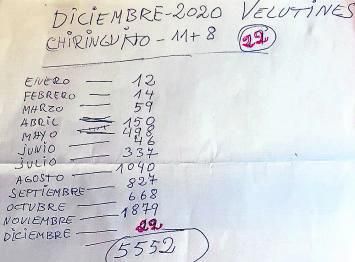 DICIEMBRE-2020 VELUTINES
CHIRINGUITO - 11+8 22
ENERO — 12
FEBRERO — 14
MARZO — 59
ABRIL — 150
MAYO — 498
JUNIO — 46
JULIO — 337
AGOSTO — 1040
SEPTIEMBRE — 827
OCTUBRE — 668
NOVIEMBRE — 1879
DICIEMBRE — 22
5552